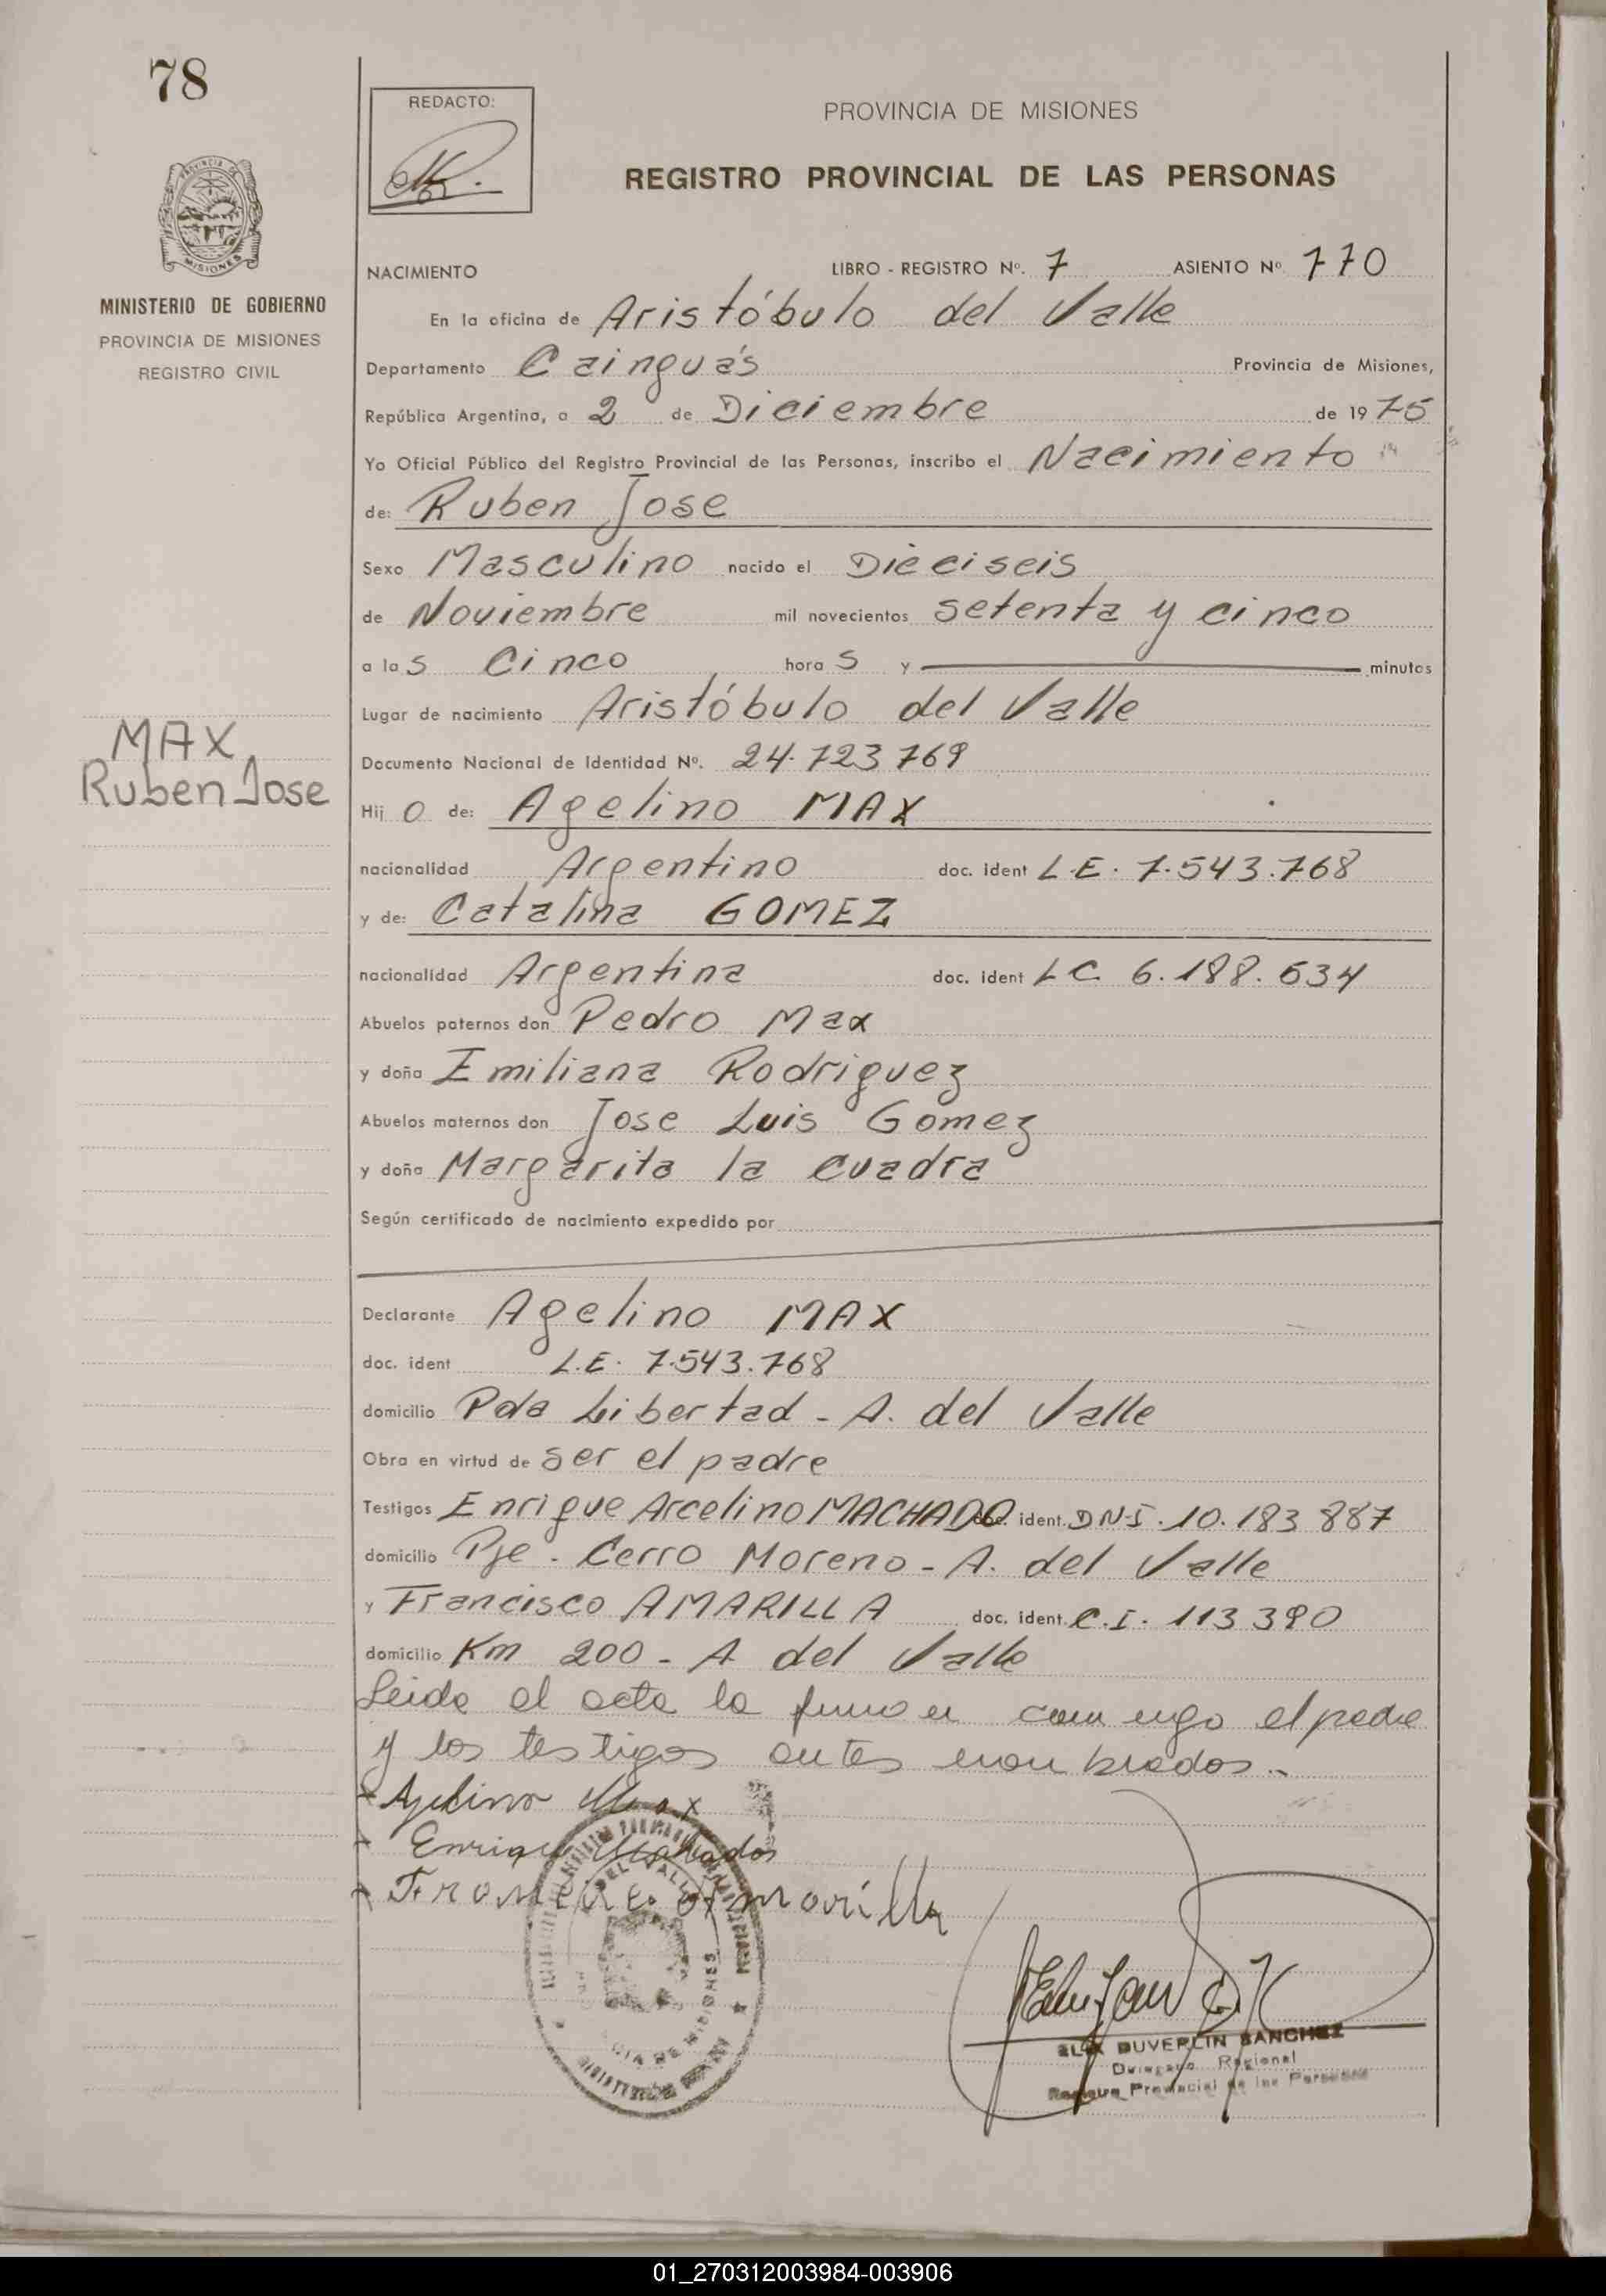 78
REDACTO:
PROVINCIA DE MISIONES
REGISTRO PROVINCIAL DE LAS PERSONAS
MISIONES
MINISTERIO DE GOBIERNO
PROVINCIA DE MISIONES
REGISTRO CIVIL
NACIMIENTO LIBRO - REGISTRO Nº. 7 ASIENTO Nº 770
En la oficina de Aristóbulo del Valle
Departamento Cainguás Provincia de Misiones,
República Argentina, a 2 de Diciembre de 1975
Yo Oficial Público del Registro Provincial de las Personas, inscribo el Nacimiento
de: Ruben Jose
Sexo Masculino nacido el Dieciseis
de Noviembre mil novecientos setenta y cinco
a las Cinco horas y minutos
Lugar de nacimiento Aristóbulo del Valle
MAX
Ruben Jose
Documento Nacional de Identidad Nº. 24.723769
Hijo de: Agelino MAX
nacionalidad Argentino doc. ident L.E. 7.543.768
y de: Catalina GOMEZ
nacionalidad Argentina doc. ident LC 6.188.634
Abuelos paternos don Pedro Max
y doña Emiliana Rodriguez
Abuelos maternos don Jose Luis Gomez
y doña Margarita la cuadra
Según certificado de nacimiento expedido por
Declarante Agelino MAX
doc. ident L.E. 7.543.768
domicilio Pda Libertad - A. del Valle
Obra en virtud de ser el padre
Testigos Enrique Arcelino MACHADO doc. ident. DN.I. 10.183 887
domicilio Pje. Cerro Moreno - A. del Valle
y Francisco AMARILLA doc. ident. C.I. 113390
domicilio Km 200 - A del Valle
Leida el acta la firman conmigo el padre
y los testigos antes nombrados.-
Agelino Max
Enrique Machado
DEL VALLE
MISIONES
DUVERLIN SANCHEZ
Regional
Provincial de las Personas
01_270312003984-003906